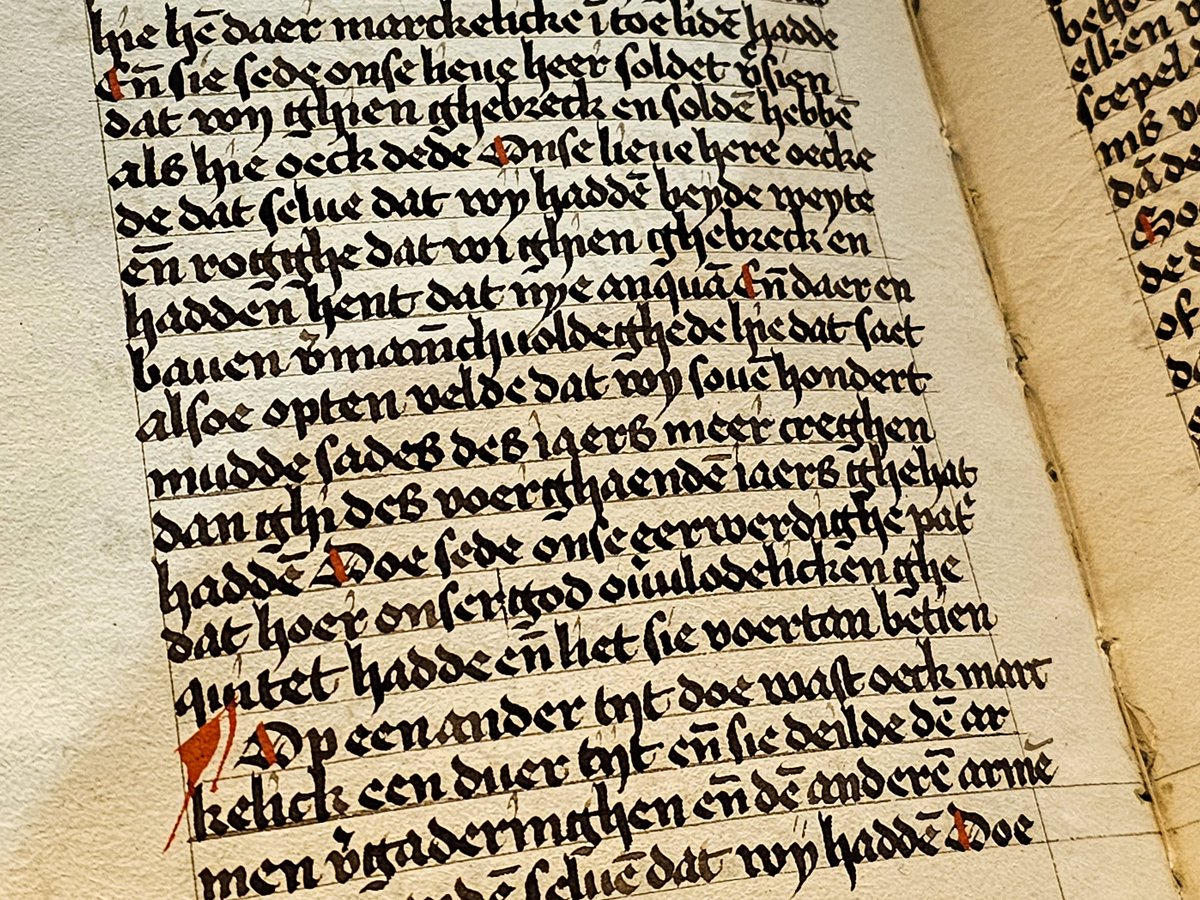 hie hē daer marckelicke ī toē lidē hadde
Eñ sie sede onse lieue heer soldet v̄sien
dat wy ghien ghebreck en soldē hebbē
als hie oeck dede Onse lieue here oecke
de dat selue dat wy haddē beyde weyte
eñ rogghe dat wi ghien ghebreck en
haddeñ hent dat nye an quā Eñ daer en
bauen v̄mam̄chuoldeghede hie dat saet
alsoe opten velde dat wy souē hondert
mudde sades des iaers meer creghen
dan ghi des voerghaendē iaers ghehat
haddē Doe sede onse eerwerdighe pat̄
dat hoer onser god ou̅ulodelicken ghe
quitet hadde eñ liet sie voertan betien
Op een ander tyt doe wast oeck marc
kelick een duer tyt eñ sie deilde dē ar
men v̄gaderinghen eñ dē anderē armē
seluē dat wy haddē Doe
beho
elken
scepel
ms
dā de
So
de d
of